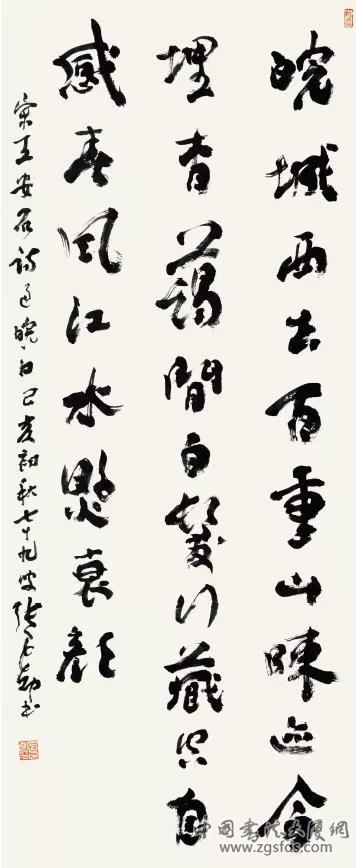 皖城西去百重山陳迹今
埋杳藹間白髮行藏空自
感春風江水照衰顏
宋王安石詩過皖口己亥初秋七十九叟張
書